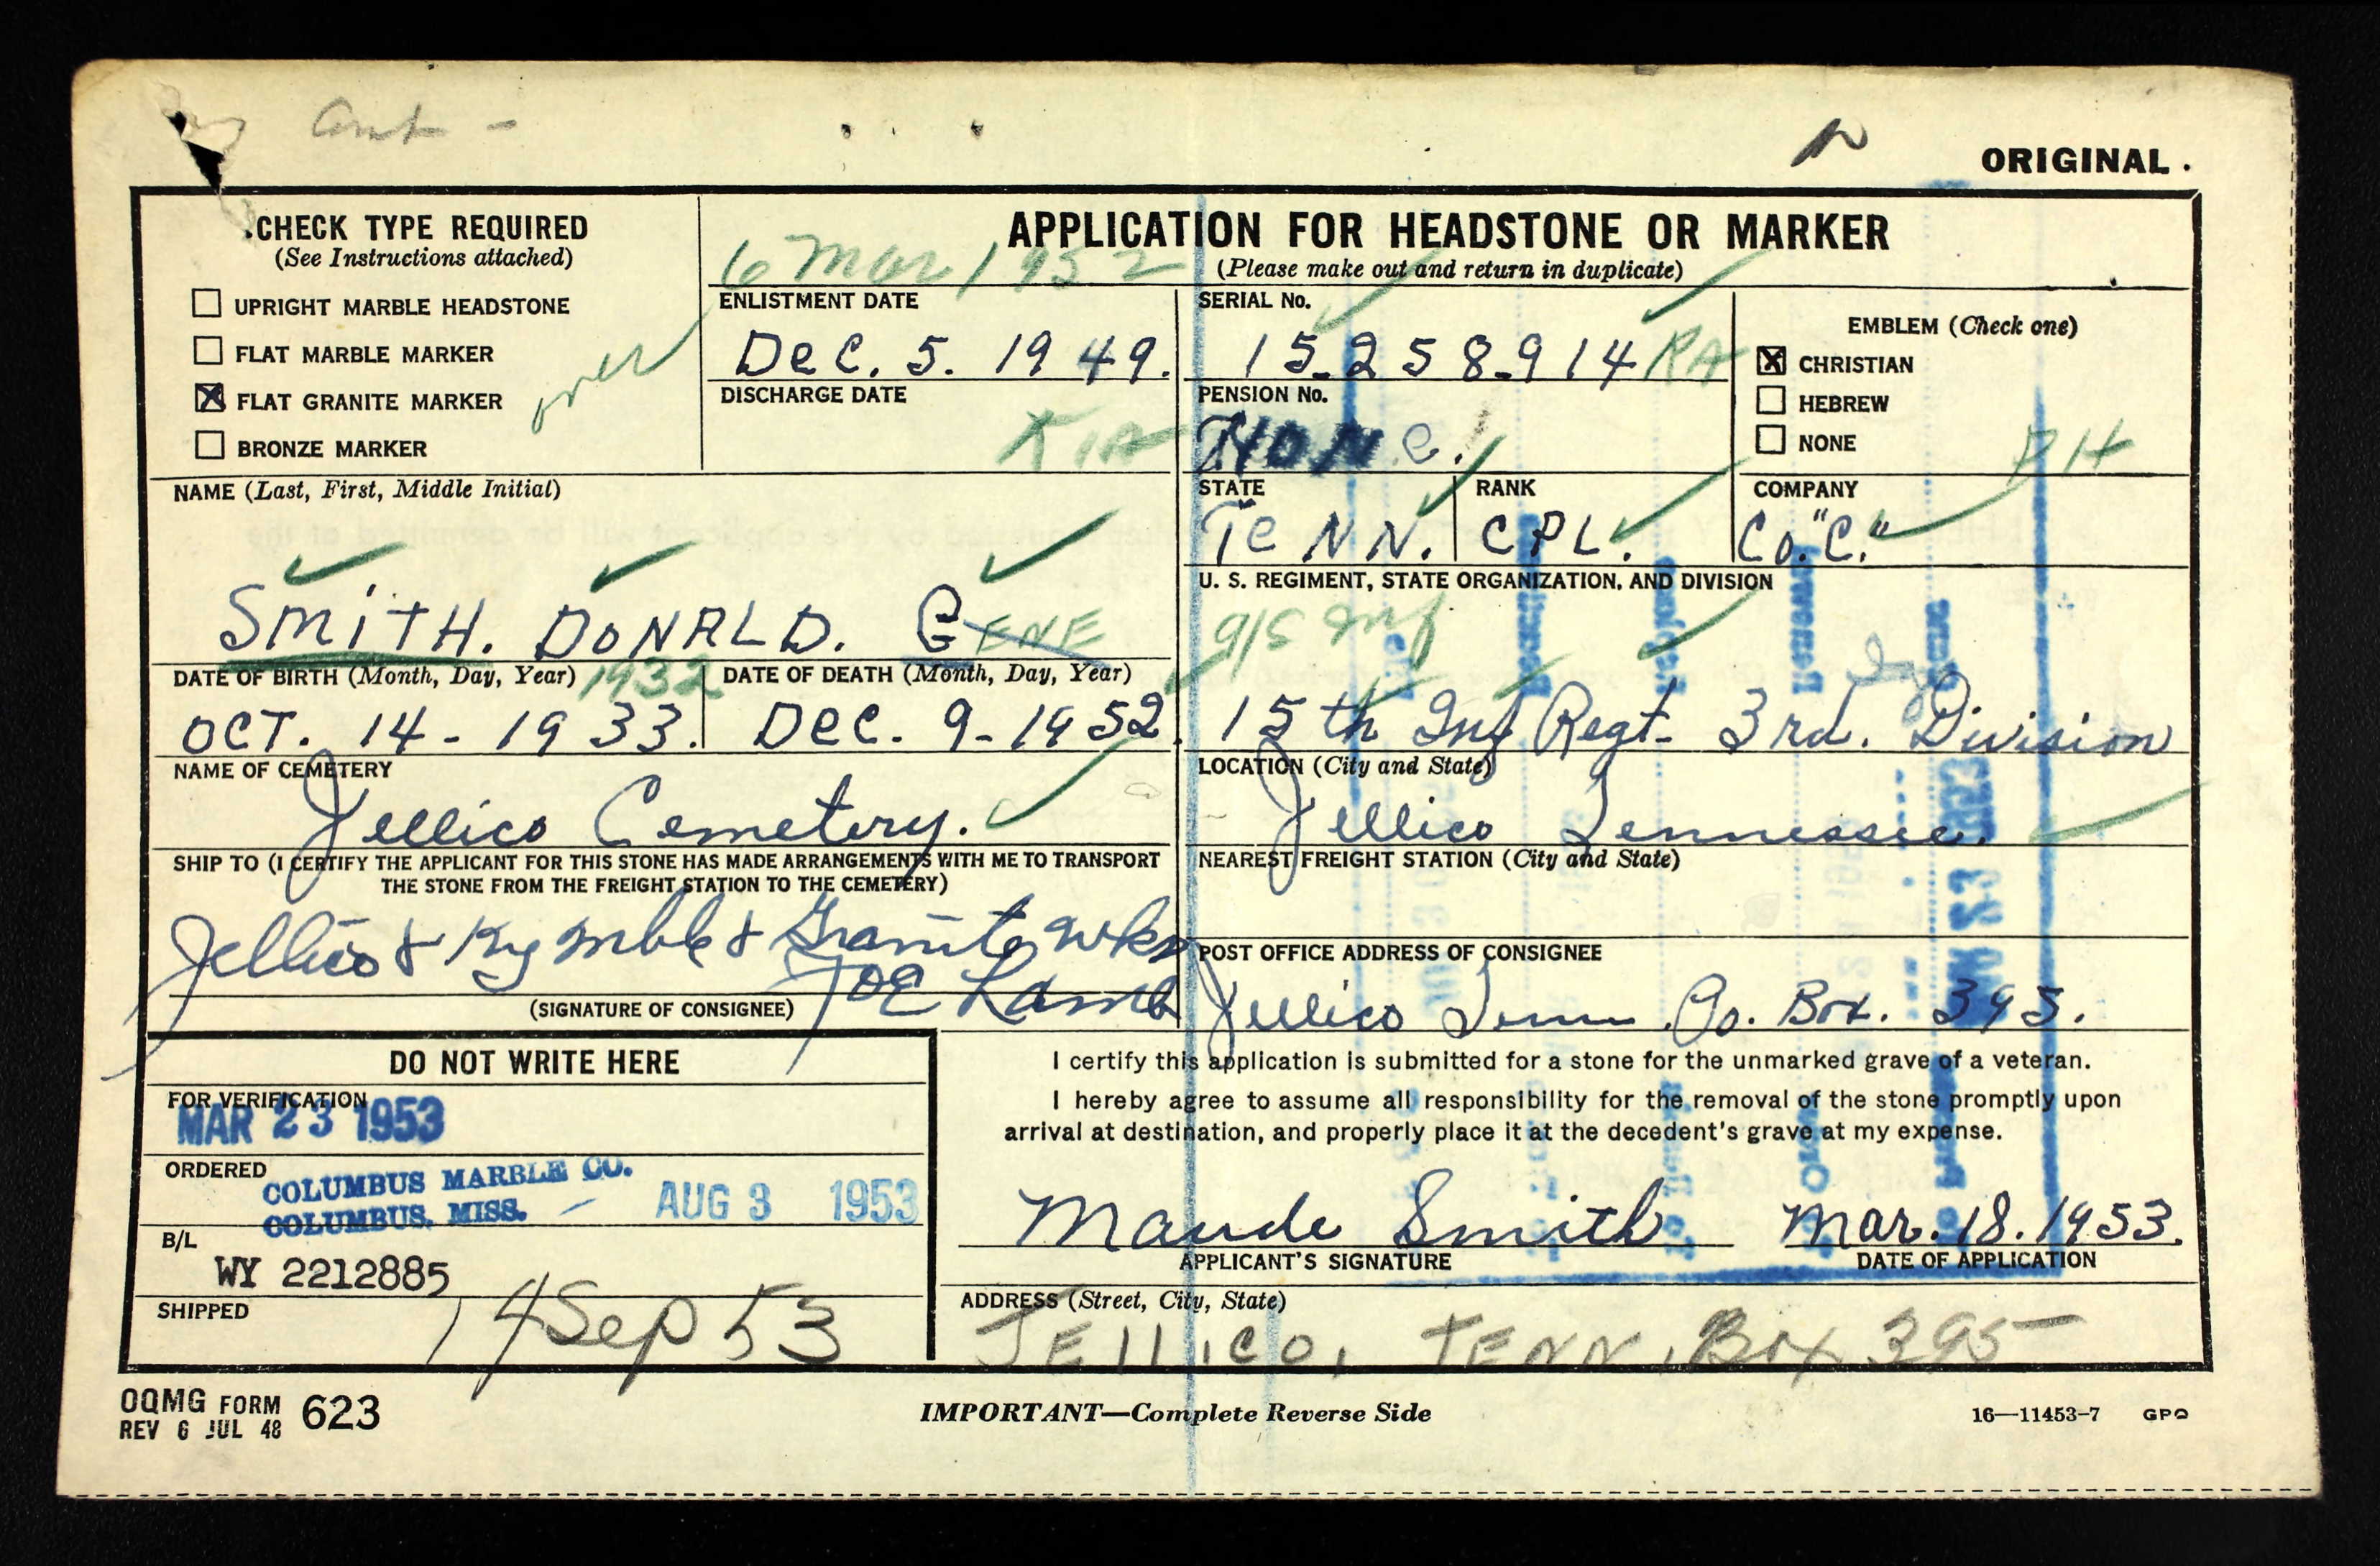 Cont -
ORIGINAL.
CHECK TYPE REQUIRED
(See Instructions attached)
UPRIGHT MARBLE HEADSTONE
FLAT MARBLE MARKER
FLAT GRANITE MARKER
BRONZE MARKER
over
APPLICATION FOR HEADSTONE OR MARKER
(Please make out and return in duplicate)
6 Mar 1952
ENLISTMENT DATE
DEC. 5. 1949.
SERIAL No.
15-258-914 RA
DISCHARGE DATE
KIA
PENSION No.
NONE.
EMBLEM (Check one)
CHRISTIAN
HEBREW
NONE
PH
NAME (Last, First, Middle Initial)
SMITH. DONALD. GENE
STATE
TENN.
RANK
CPL.
COMPANY
Co. "C."
U. S. REGIMENT, STATE ORGANIZATION, AND DIVISION
15 Inf
15th Inf Regt- 3rd. Division
DATE OF BIRTH (Month, Day, Year) 1932
OCT. 14- 1933.
DATE OF DEATH (Month, Day, Year)
DEC. 9- 1952.
NAME OF CEMETERY
Jellico Cemetery.
LOCATION (City and State)
Jellico Tennessee.
SHIP TO (I CERTIFY THE APPLICANT FOR THIS STONE HAS MADE ARRANGEMENTS WITH ME TO TRANSPORT
THE STONE FROM THE FREIGHT STATION TO THE CEMETERY)
Jellico & Ky Mble & Granite Wks
JOE Lamb
(SIGNATURE OF CONSIGNEE)
NEAREST FREIGHT STATION (City and State)
POST OFFICE ADDRESS OF CONSIGNEE
Jellico Tenn. Po. Box. 395.
DO NOT WRITE HERE
FOR VERIFICATION
MAR 23 1953
ORDERED
COLUMBUS MARBLE CO.
COLUMBUS, MISS. - AUG 3 1953
B/L
WY 2212885
SHIPPED
14 Sep 53
I certify this application is submitted for a stone for the unmarked grave of a veteran.
I hereby agree to assume all responsibility for the removal of the stone promptly upon
arrival at destination, and properly place it at the decedent's grave at my expense.
Maude Smith
APPLICANT'S SIGNATURE
Mar. 18. 1953.
DATE OF APPLICATION
ADDRESS (Street, City, State)
JEllico, TENN. Box 395
OQMG FORM 623
REV 6 JUL 48
IMPORTANT—Complete Reverse Side
16—11453-7 GPO